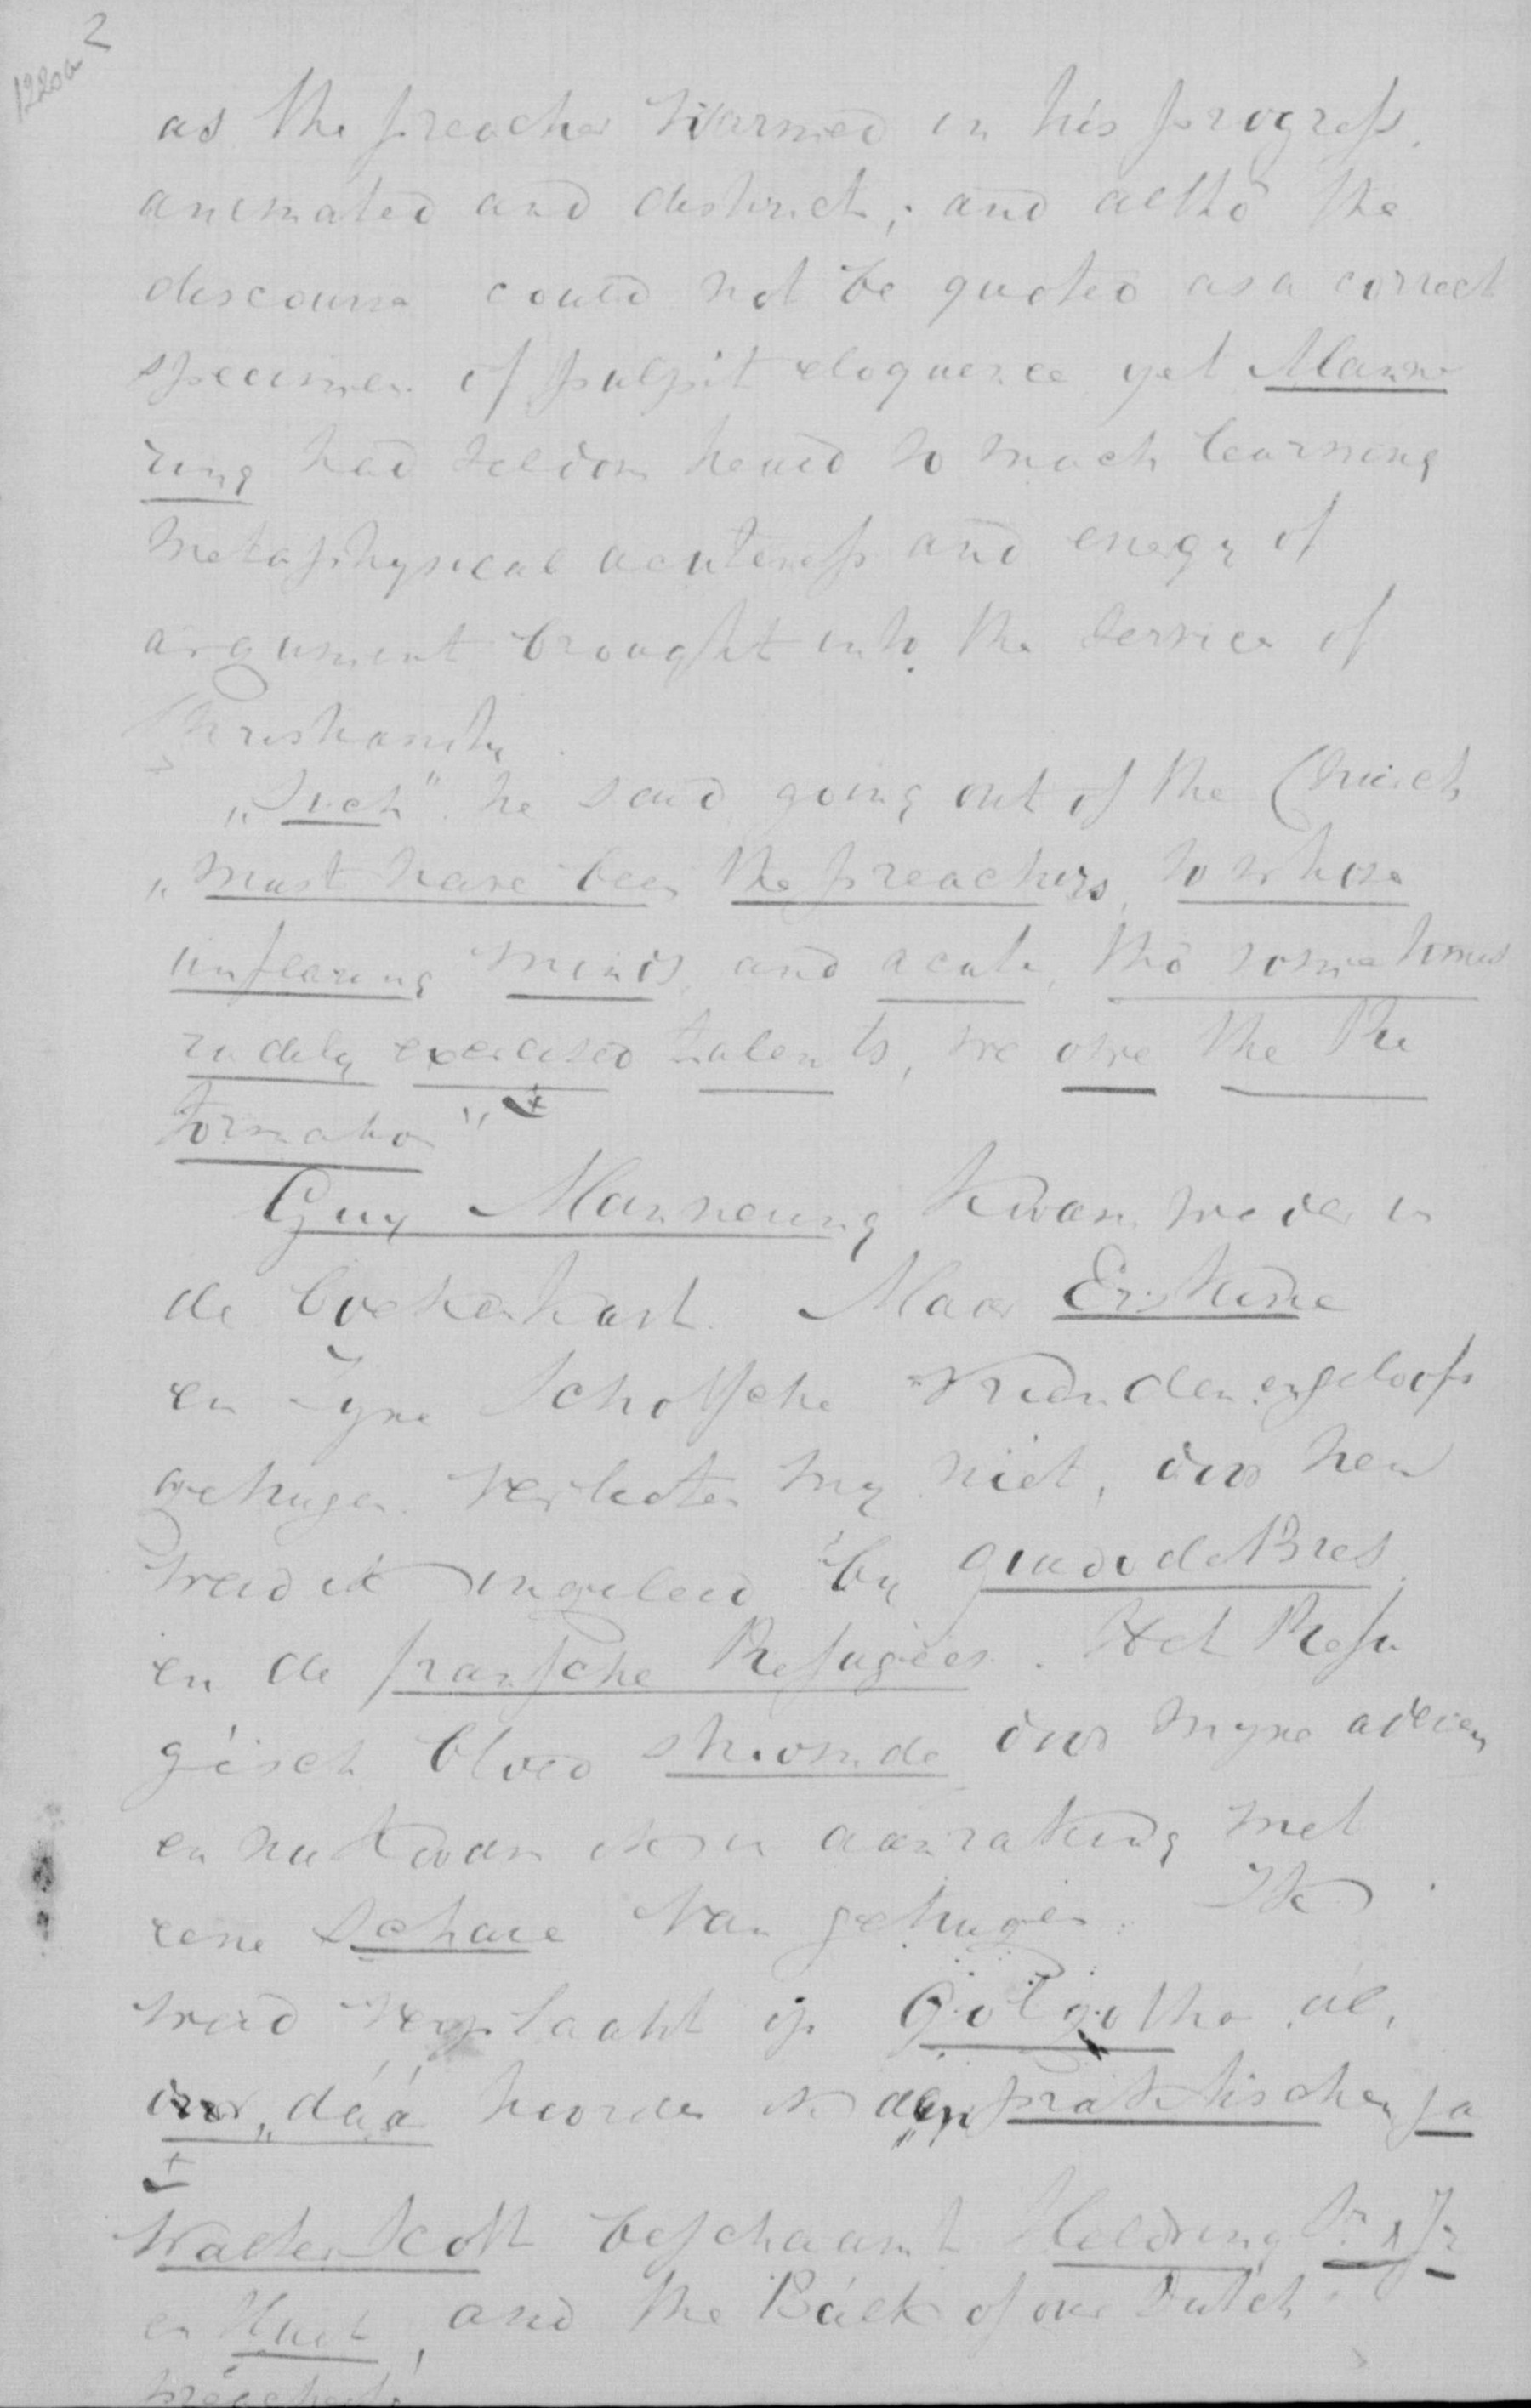 2
1220a
as the preacher warmed in his progress.
animated and distinct; and altho' the
discourse could not be quoted as a correct
specimen of pulpit eloquence yet Manne
ring had seldom heard so much learning
metaphysical acuteness and energy of
argument brought into the service of
Christianity.
„Such" he said going out of the Church
„must have been the preachers, to whose
unfearing minds, and acute, tho' sometimes
rudely exercised talents, we owe the Re
formation" +
Guy Mannering kwam weder in
de boekenkast. Maar Erskine
en zyne Schotsche vrienden, geloofs
getuigen verlieten my niet, door hen
werd ik ingeleid by Guido de Bres
en de fransche Refugiees. Het Refu
giésch bloed stroomde door myne aderen
en nu kwam ik in aanraking met
eene schare van getuigen. Ik
werd verplaatst op Golgotha ál,
door „dáá hoorde ik den praktischen ja
+
Walter Scott beschaamt Heldring Sr & Jr
en Huet, and the Bulk of our Dutch
preachers.